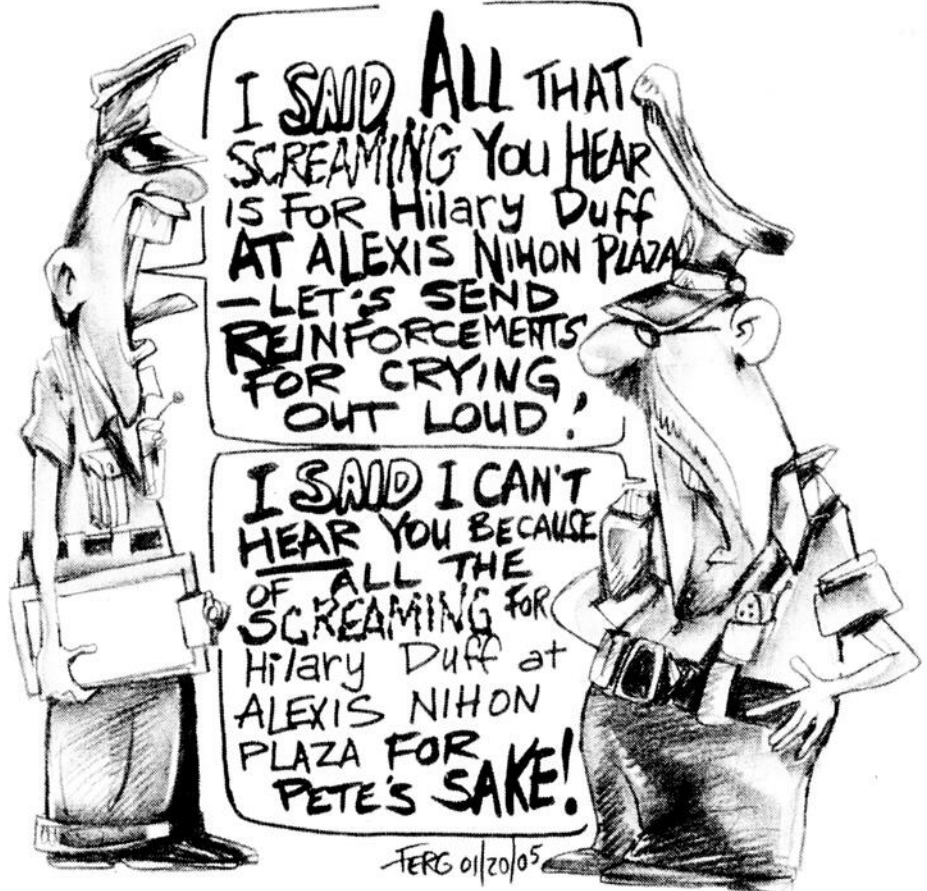 I SAID ALL THAT
SCREAMING YOU HEAR
IS FOR Hilary Duff
AT ALEXIS NIHON PLAZA
- LET'S SEND
REINFORCEMENTS
FOR CRYING
OUT LOUD!
I SAID I CAN'T
HEAR YOU BECAUSE
OF ALL THE
SCREAMING FOR
Hilary Duff at
ALEXIS NIHON
PLAZA FOR
PETE'S SAKE!
FERG 01/20/05